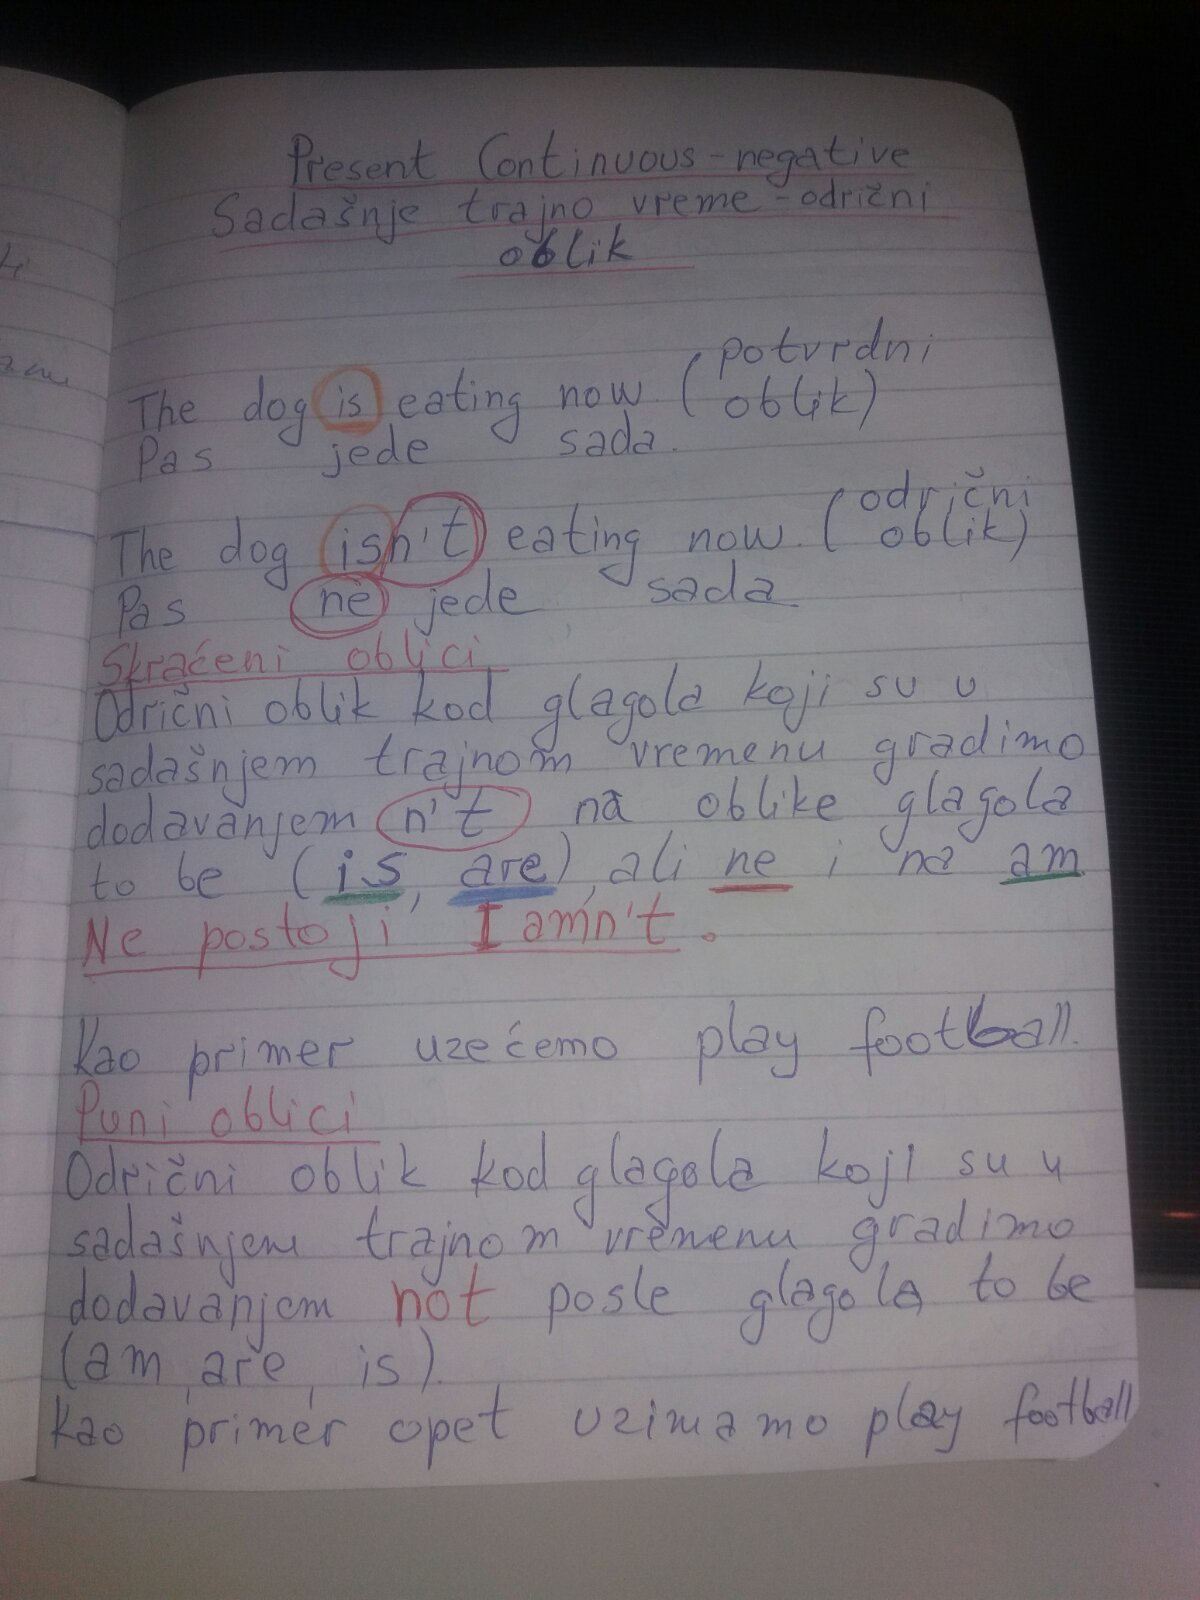 Present Continuous - negative
Sadašnje trajno vreme - odrični
oblik
The dog is eating now. (potvrdni
oblik)
Pas jede sada.
The dog isn't eating now. (odrični
oblik)
Pas ne jede sada
Skraćeni oblici
Odrični oblik kod glagola koji su u
sadašnjem trajnom vremenu gradimo
dodavanjem n't na oblike glagola
to be (is, are), ali ne i na am
Ne postoji I amn't.
Kao primer uzećemo play football.
Puni oblici
Odrični oblik kod glagola koji su u
sadašnjem trajnom vremenu gradimo
dodavanjem not posle glagola to be
(am, are, is).
Kao primer opet uzimamo play football